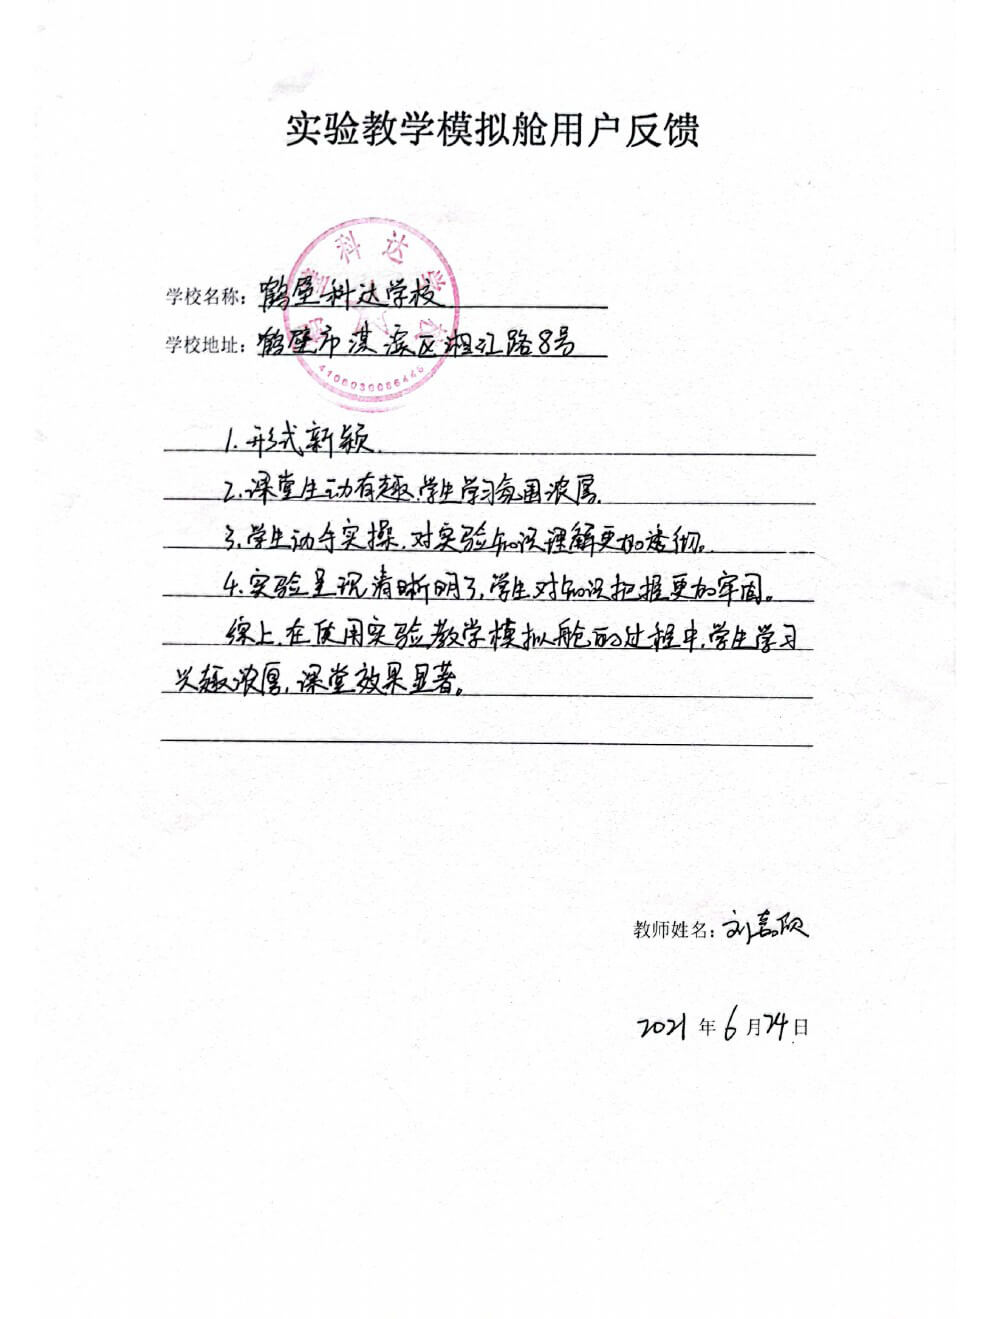 实验教学模拟舱用户反馈
科达学
学校名称：鹤壁科达学校
学校地址：鹤壁市淇滨区湘江路8号
1.形式新颖.
2.课堂生动有趣,学生学习氛围浓厚.
3.学生动手实操,对实验知识理解更加透彻。
4.实验呈现清晰明了,学生对知识把握更加牢固。
综上,在使用实验教学模拟舱的过程中,学生学习
兴趣浓厚,课堂效果显著。
教师姓名：刘嘉欣
2021年6月24日